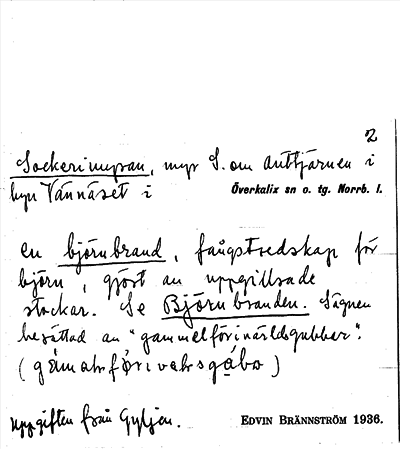 2
Sockerimyran, myr S. om Auttjärnen i
byn Vännäset i Överkalix sn o. tg. Norrb. l.
en björnbrand, fångstredskap för
björn, gjöst av uppgillrade
stockar. Se Björnbranden. Sägnen
berättad av "gammelförivärldsgubbar".
uppgiften från Gyljen. EDVIN BRÄNNSTRÖM 1936.